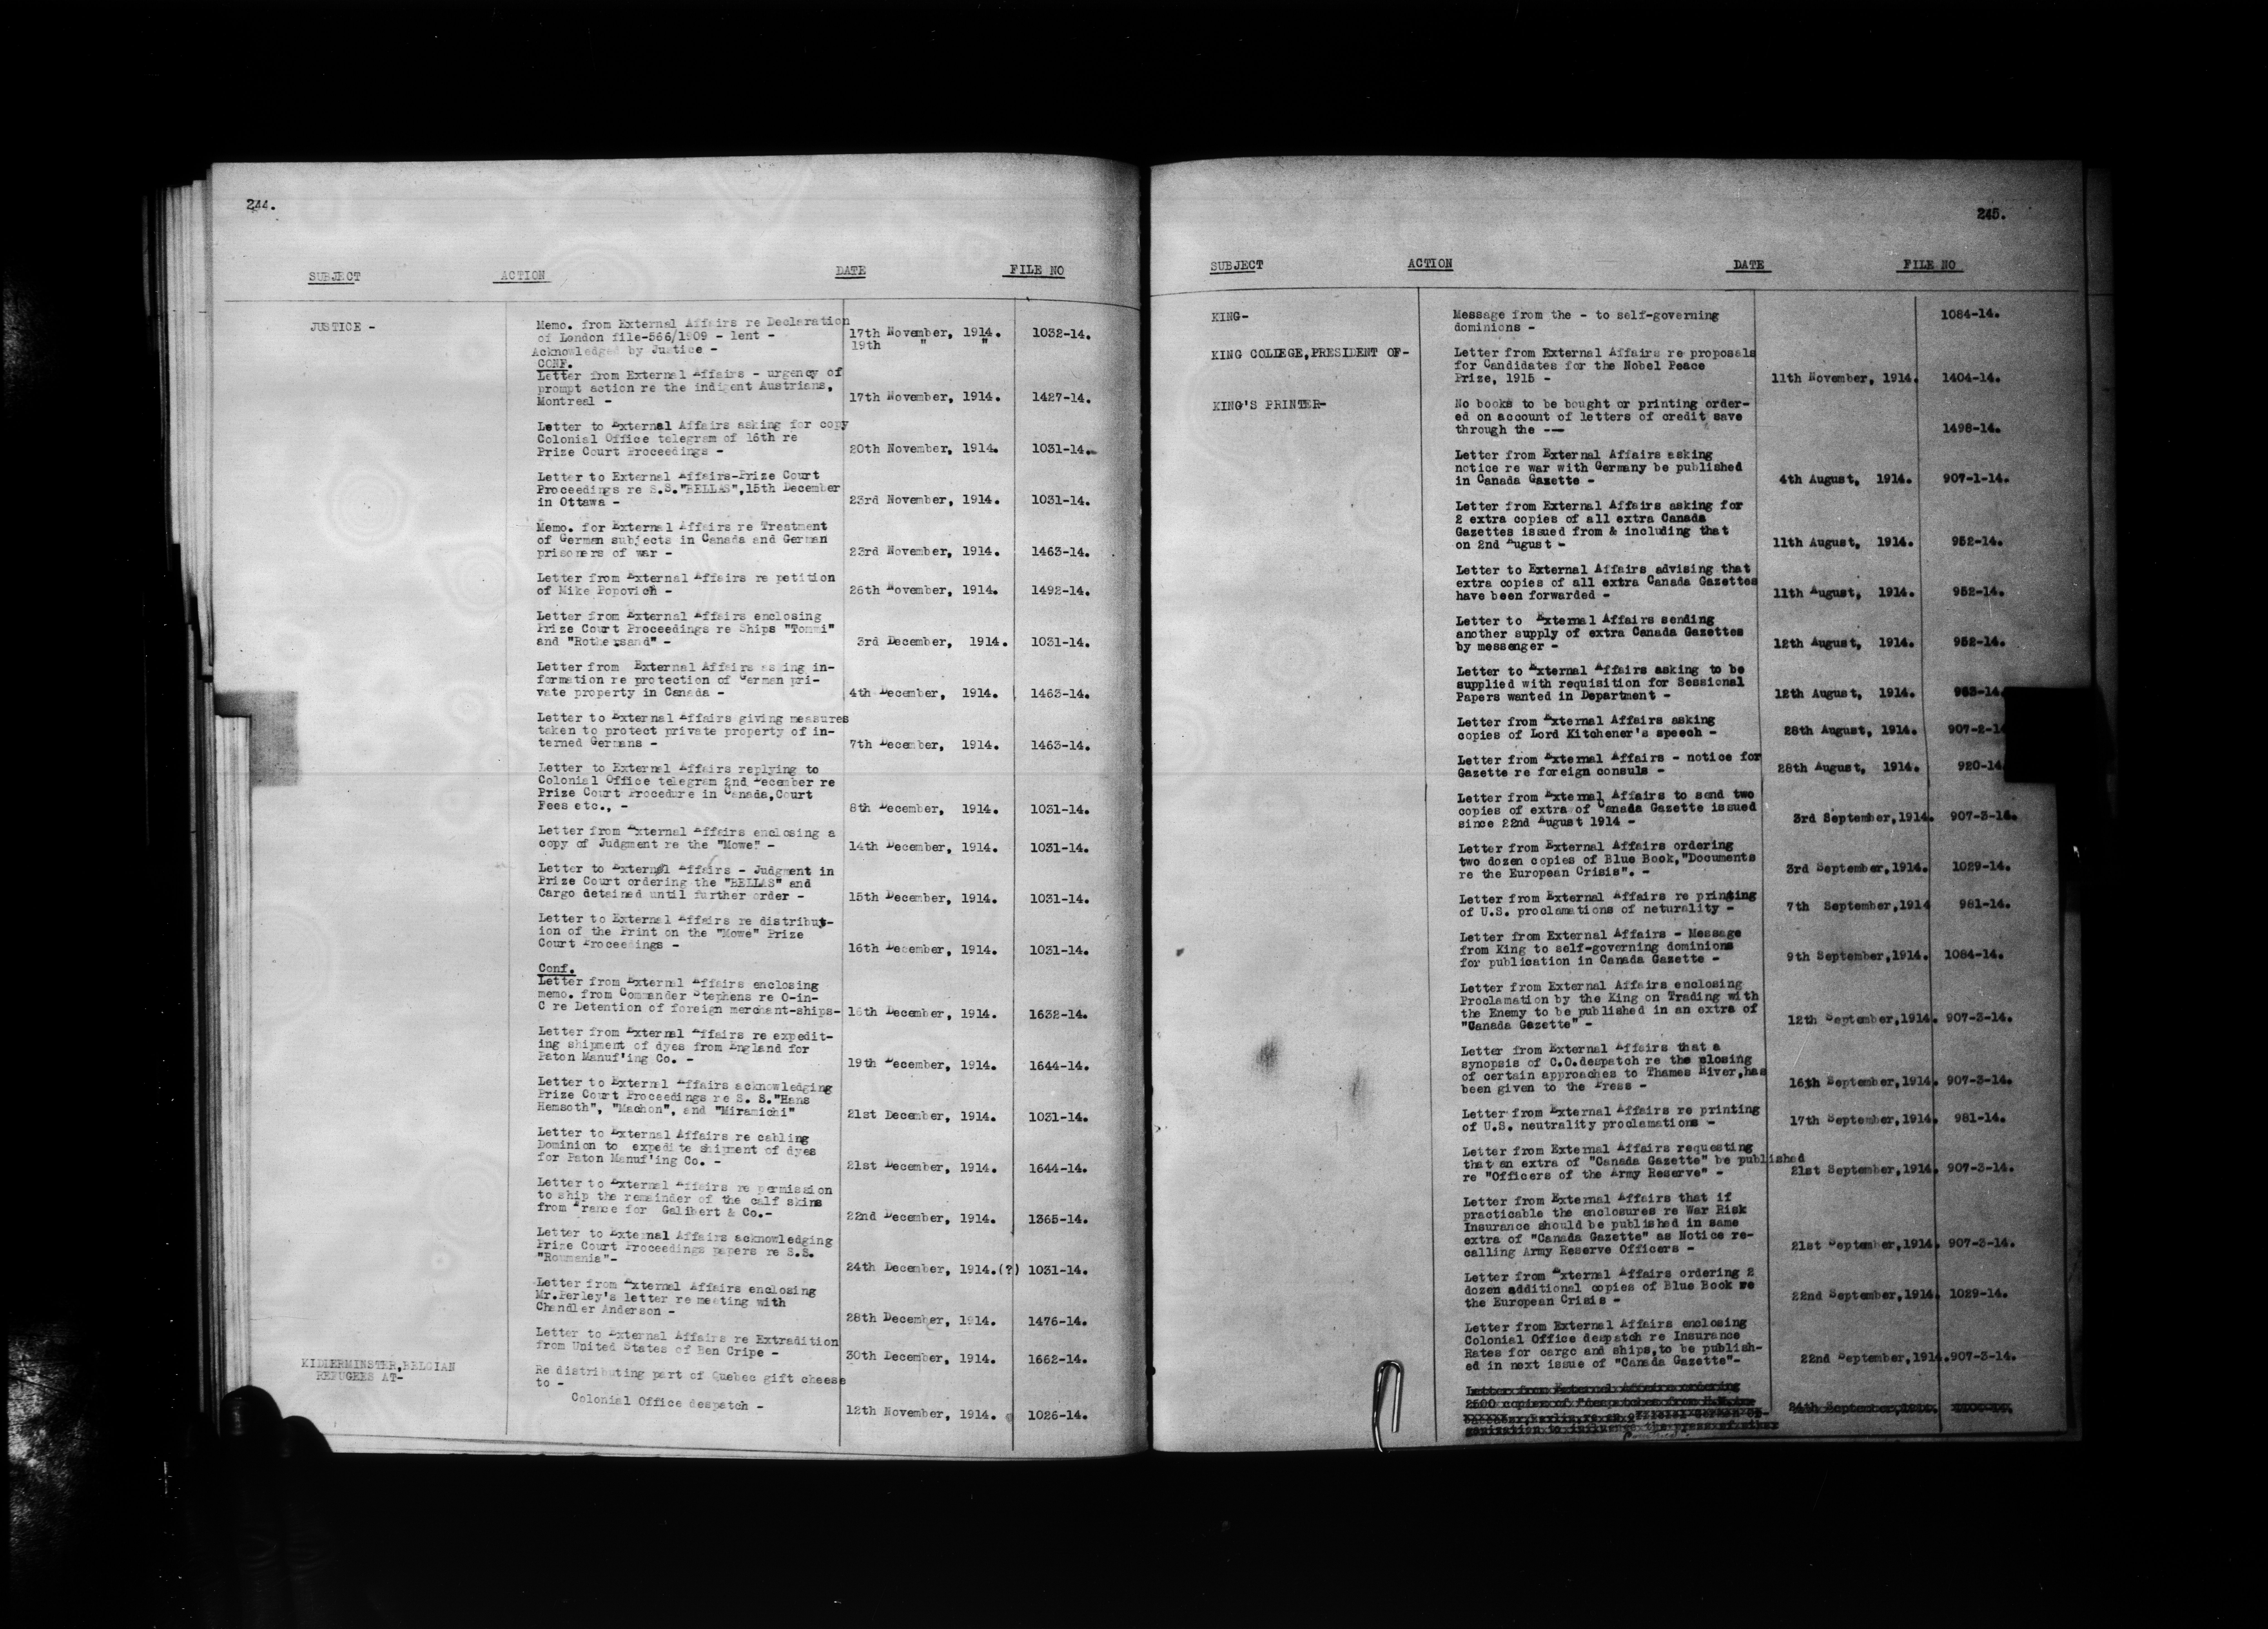 244.
SUBJECT ACTION DATE FILE NO
JUSTICE - Memo. from External Affairs re Declaration
of London file-566/1909 - lent - 17th November, 1914. 1032-14.
Acknowledged by Justice - 19th " "
CONF.
Letter from External Affairs - urgency of
prompt action re the indigent Austrians,
Montreal - 17th November, 1914. 1427-14.
Letter to External Affairs asking for copy
Colonial Office telegram of 16th re
Prize Court Proceedings - 20th November, 1914. 1031-14.
Letter to External Affairs-Prize Court
Proceedings re S.S."BELLAS",15th December
in Ottawa - 23rd November, 1914. 1031-14.
Memo. for External Affairs re Treatment
of German subjects in Canada and German
prisoners of war - 23rd November, 1914. 1463-14.
Letter from External Affairs re petition
of Mike Popovich - 26th November, 1914. 1492-14.
Letter from External Affairs enclosing
Prize Court Proceedings re Ships "Tommi"
and "Rothersand" - 3rd December, 1914. 1031-14.
Letter from External Affairs asking in-
formation re protection of German pri-
vate property in Canada - 4th December, 1914. 1463-14.
Letter to External Affairs giving measures
taken to protect private property of in-
terned Germans - 7th December, 1914. 1463-14.
Letter to External Affairs replying to
Colonial Office telegram 2nd December re
Prize Court Procedure in Canada,Court
Fees etc., - 8th December, 1914. 1031-14.
Letter from External Affairs enclosing a
copy of Judgment re the "Mowe" - 14th December, 1914. 1031-14.
Letter to External Affairs - Judgment in
Prize Court ordering the "BELLAS" and
Cargo detained until further order - 15th December, 1914. 1031-14.
Letter to External Affairs re distribut-
ion of the Print on the "Mowe" Prize
Court Proceedings - 16th December, 1914. 1031-14.
Conf.
Letter from External Affairs enclosing
memo. from Commander Stephens re O-in-
C re Detention of foreign merchant-ships- 16th December, 1914. 1632-14.
Letter from External Affairs re expedit-
ing shipment of dyes from England for
Paton Manuf'ing Co. - 19th December, 1914. 1644-14.
Letter to External Affairs acknowledging
Prize Court Proceedings re S. S."Hans
Hemsoth", "Machon", and "Miramichi" 21st December, 1914. 1031-14.
Letter to External Affairs re cabling
Dominion to expedite shipment of dyes
for Paton Manuf'ing Co. - 21st December, 1914. 1644-14.
Letter to External Affairs re permission
to ship the remainder of the calf skins
from France for Galibert & Co.- 22nd December, 1914. 1365-14.
Letter to External Affairs acknowledging
Prize Court Proceedings papers re S.S.
"Roumania"- 24th December, 1914.(?) 1031-14.
Letter from External Affairs enclosing
Mr.Perley's letter re meeting with
Chandler Anderson - 28th December, 1914. 1476-14.
Letter to External Affairs re Extradition
from United States of Ben Cripe - 30th December, 1914. 1662-14.
KIDDERMINSTER,BELGIAN
REFUGEES AT- Re distributing part of Quebec gift cheese
to -
Colonial Office despatch - 12th November, 1914. 1026-14.
245.
SUBJECT ACTION DATE FILE NO
KING- Message from the - to self-governing 1084-14.
dominions -
KING COLLEGE,PRESIDENT OF- Letter from External Affairs re proposals
for Candidates for the Nobel Peace
Prize, 1915 - 11th November, 1914. 1404-14.
KING'S PRINTER- No books to be bought or printing order-
ed on account of letters of credit save
through the -- 1498-14.
Letter from External Affairs asking
notice re war with Germany be published
in Canada Gazette - 4th August, 1914. 907-1-14.
Letter from External Affairs asking for
2 extra copies of all extra Canada
Gazettes issued from & including that
on 2nd August - 11th August, 1914. 952-14.
Letter to External Affairs advising that
extra copies of all extra Canada Gazettes
have been forwarded - 11th August, 1914. 952-14.
Letter to External Affairs sending
another supply of extra Canada Gazettes
by messenger - 12th August, 1914. 952-14.
Letter to External Affairs asking to be
supplied with requisition for Sessional
Papers wanted in Department - 12th August, 1914.
Letter from External Affairs asking
copies of Lord Kitchener's speech - 28th August, 1914. 907-2-14
Letter from External Affairs - notice for
Gazette re foreign consuls - 28th August, 1914. 920-14
Letter from External Affairs to send two
copies of extra of Canada Gazette issued
since 22nd August 1914 - 3rd September,1914. 907-3-14.
Letter from External Affairs ordering
two dozen copies of Blue Book,"Documents
re the European Crisis". - 3rd September,1914. 1029-14.
Letter from External Affairs re printing
of U.S. proclamations of neturality - 7th September,1914 981-14.
Letter from External Affairs - Message
from King to self-governing dominions
for publication in Canada Gazette - 9th September,1914. 1084-14.
Letter from External Affairs enclosing
Proclamation by the King on Trading with
the Enemy to be published in an extra of
"Canada Gazette" - 12th September,1914. 907-3-14.
Letter from External Affairs that a
synopsis of C.O.despatch re the closing
of certain approaches to Thames River,has
been given to the Press - 16th September,1914. 907-3-14.
Letter from External Affairs re printing
of U.S. neutrality proclamations - 17th September,1914. 981-14.
Letter from External Affairs requesting
that an extra of "Canada Gazette" be published
re "Officers of the Army Reserve" - 21st September,1914. 907-3-14.
Letter from External Affairs that if
practicable the enclosures re War Risk
Insurance should be published in same
extra of "Canada Gazette" as Notice re-
calling Army Reserve Officers - 21st September,1914. 907-3-14.
Letter from External Affairs ordering 2
dozen additional copies of Blue Book re
the European Crisis - 22nd September,1914. 1029-14.
Letter from External Affairs enclosing
Colonial Office despatch re Insurance
Rates for cargo and ships,to be publish-
ed in next issue of "Canada Gazette"- 22nd September,1914. 907-3-14.
Letter from External Affairs ordering
2500 copies of
24th September,1914.
to influence the press of other